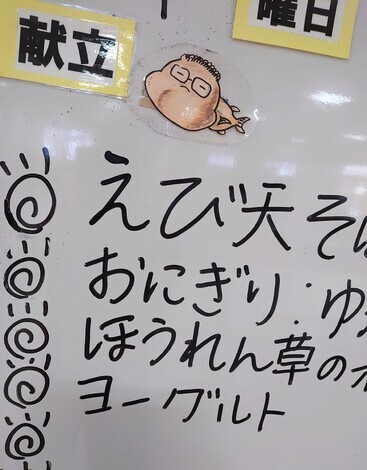 曜日
献立
えび天そ
おにぎり・ゆ
ほうれん草の
ヨーグルト